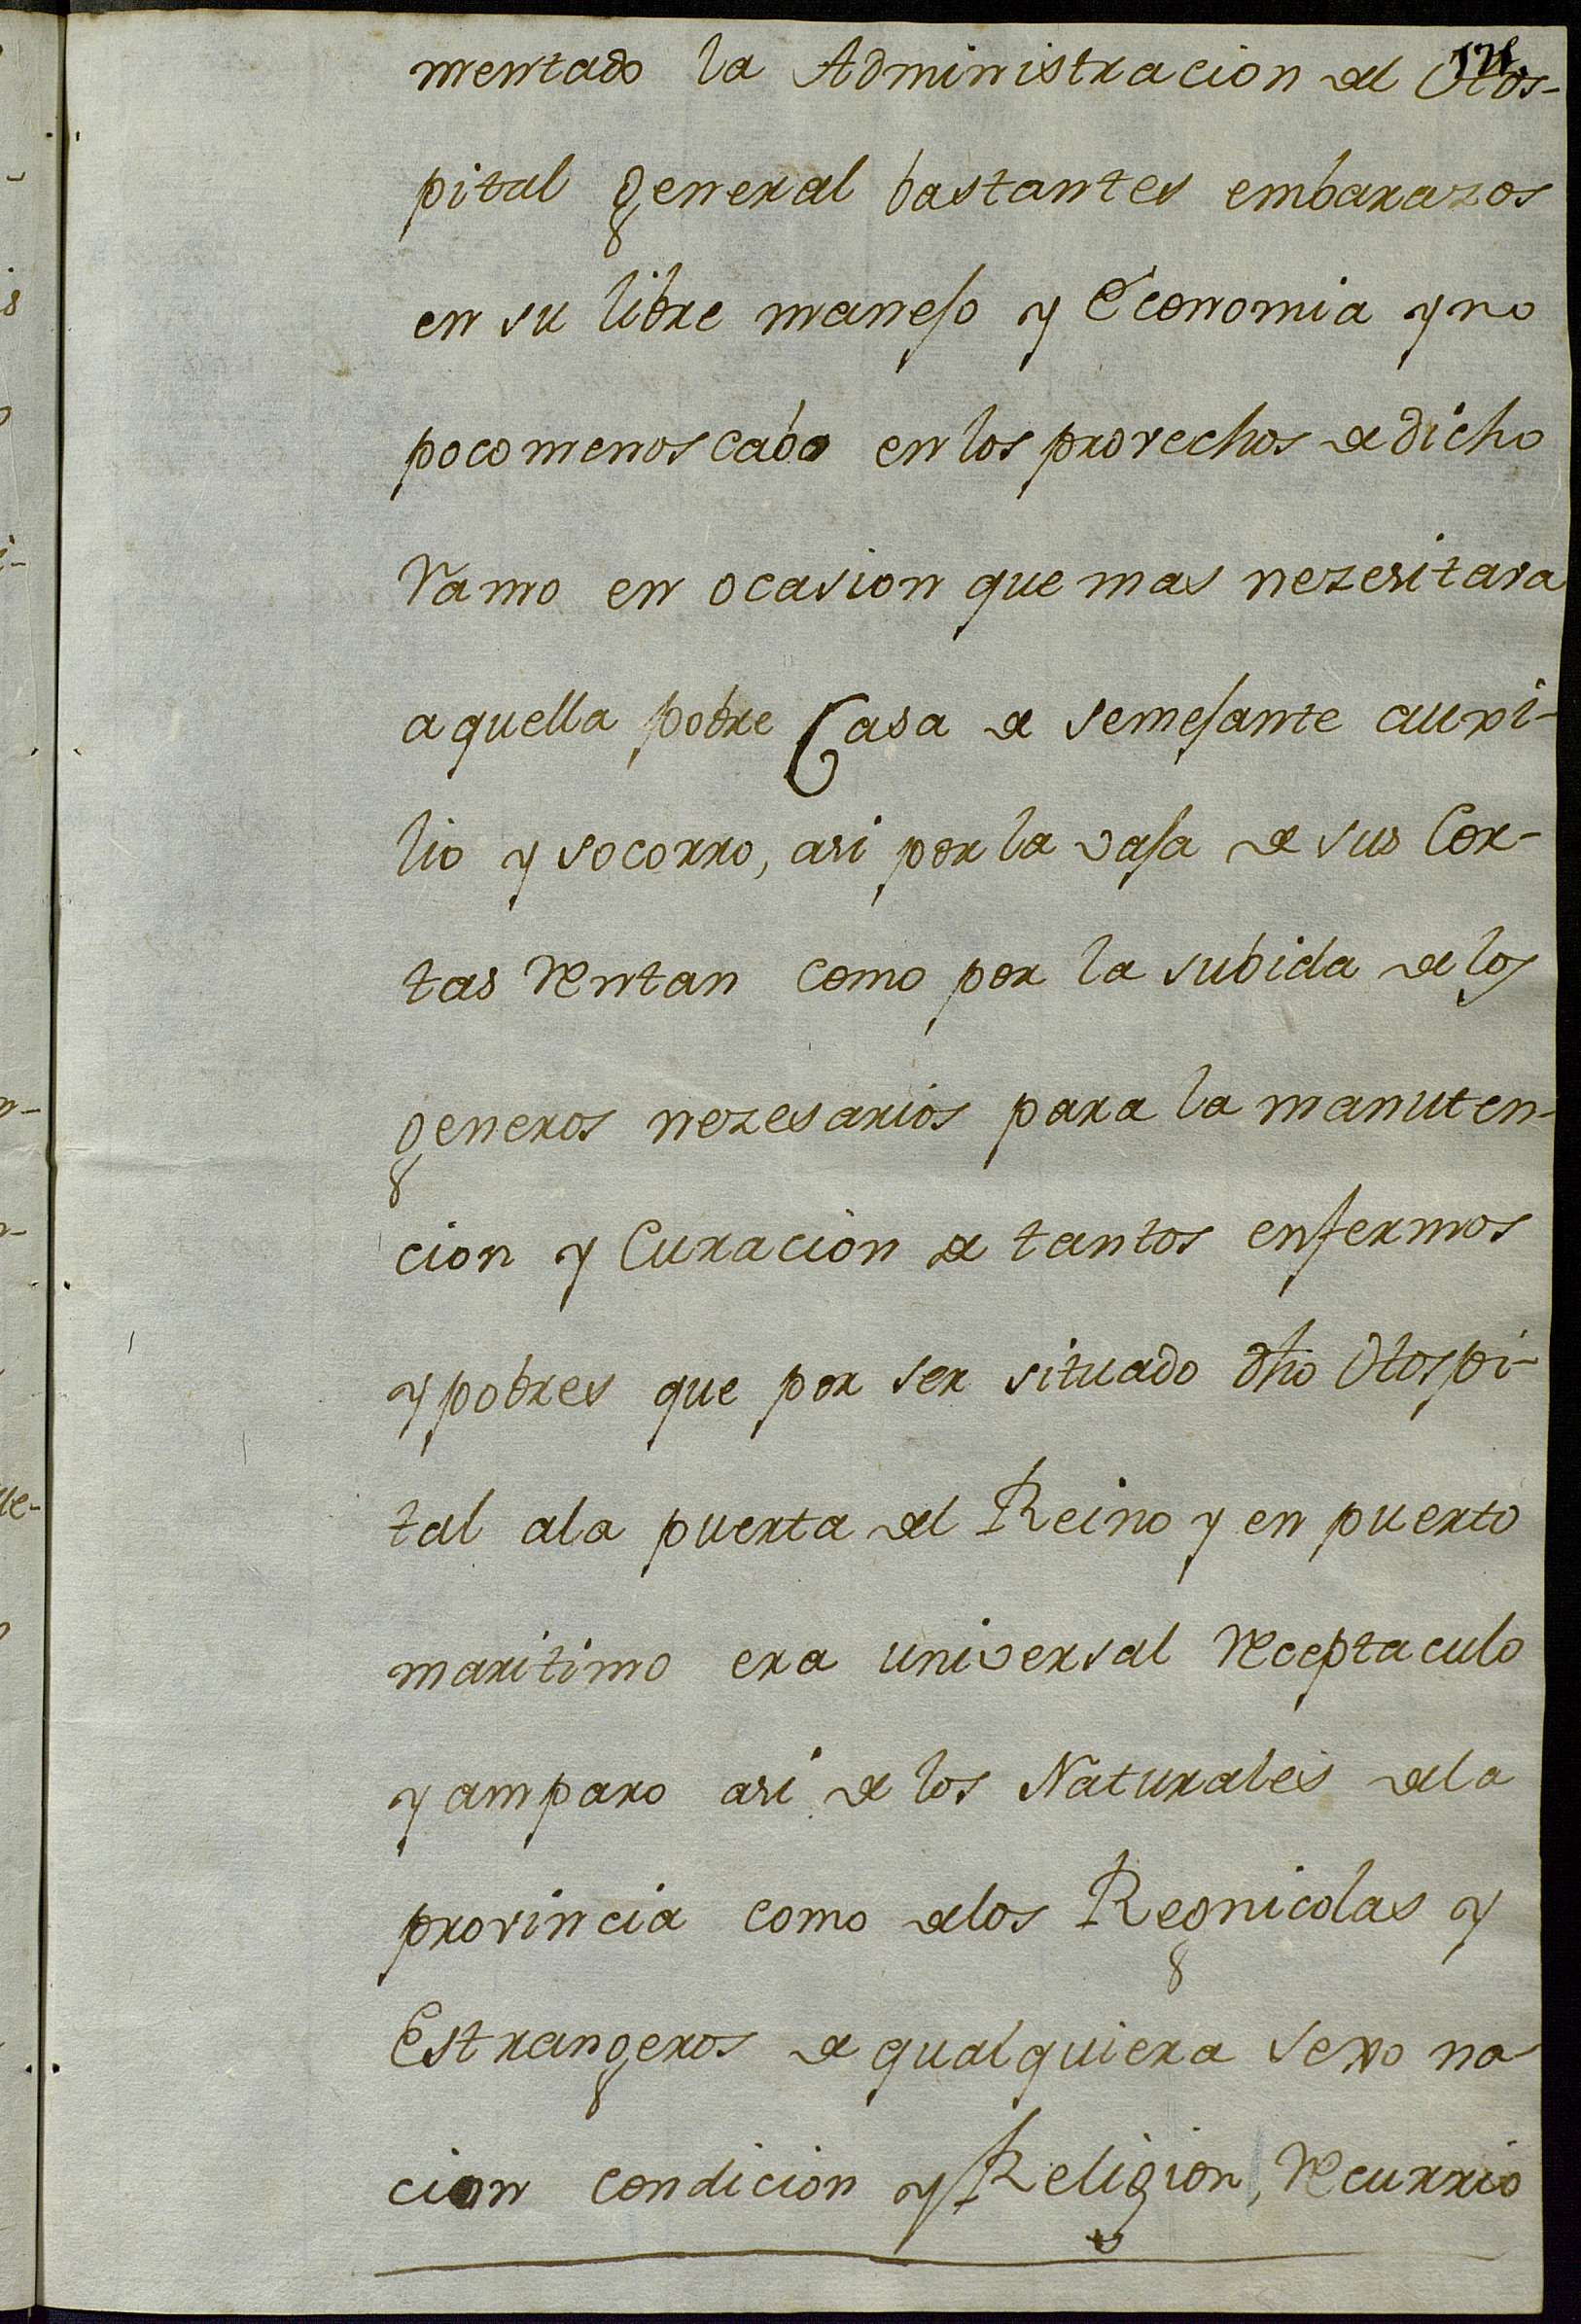 mentado la Administracion del Hos-
pital general bastantes embarazos
en su libre manejo y Economia y no
poco menoscabo en los provechos de dicho
Ramo en ocasion que mas nezesitava
aquella pobre Casa de semejante auxi-
lio y socorro, asi por la vaja de sus Cor-
tas Rentan como por la subida de los
generos nezesarios para la manuten-
cion y Curacion de tantos enfermos
y pobres que por ser situado dho Hospi-
tal ala puerta del Reino y en puerto
maritimo era universal Receptaculo
y amparo asi de los Naturales dela
provincia como delos Regnicolas y
Estrangeros de qualquiera sexo na-
cion condicion y Religion, Recurrio